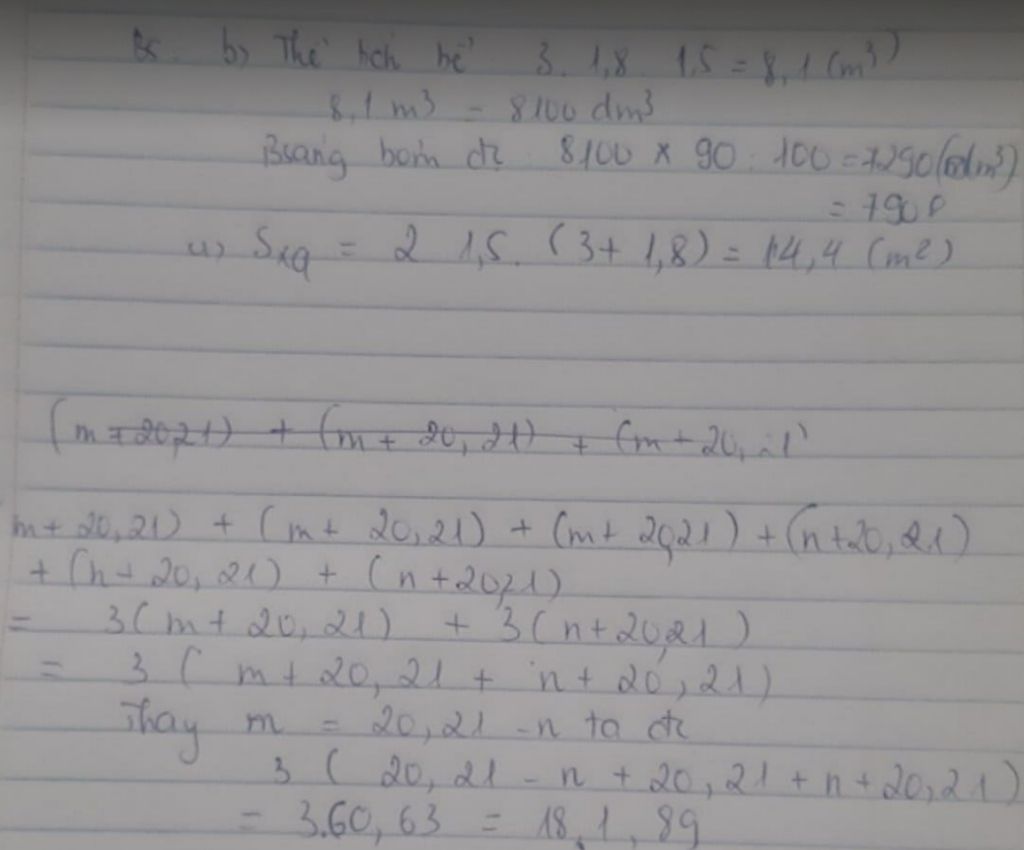 Bs. b, Thể tích bể 3. 1,8 1,5 = 8,1 (m³)
8,1 m³ = 8100 dm³
bơm đc 8100 x 90 : 100 = 7290 (dm³)
= 790 l
a, Sxq = 2 1,5. (3 + 1,8) = 14,4 (m²)
(m + 20,21) + (m + 20, 21) + (m + 20,
m + 20,21) + (m + 20,21) + (m + 20,21) + (n + 20,21)
+ (n + 20, 21) + (n + 20,21)
= 3 (m + 20, 21) + 3 (n + 20,21)
= 3 ( m + 20, 21 + n + 20, 21)
Thay m = 20,21 - n ta đc
3 ( 20, 21 - n + 20, 21 + n + 20,21)
= 3.60, 63 = 181,89